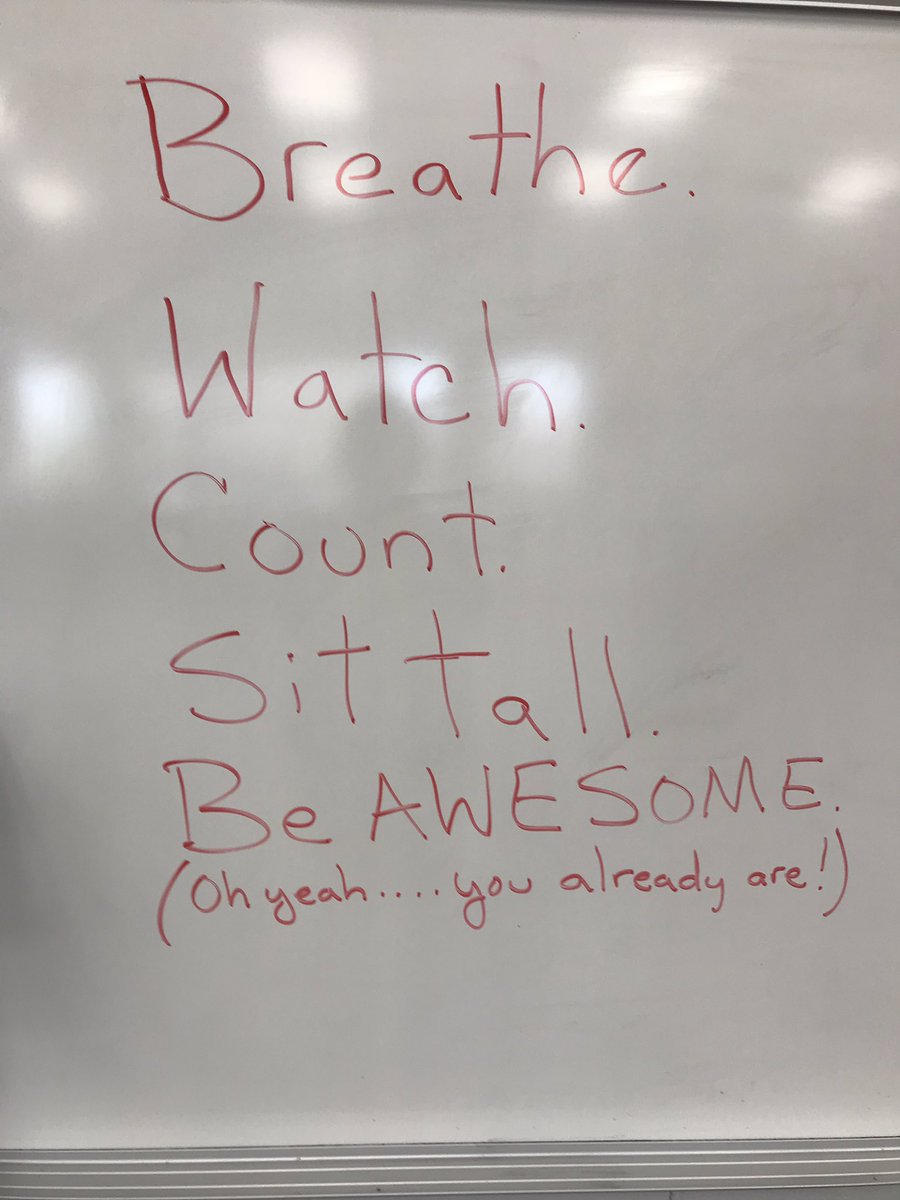 Breathe.
Watch.
Count.
Sit tall.
Be AWESOME.
(Oh yeah.... you already are!)